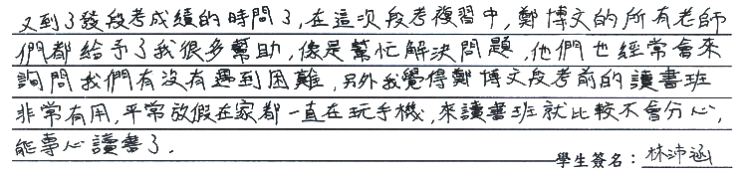 又到了發段考成績的時間了,在這次段考複習中,鄭博文的所有老師
們都給予了我很多幫助,像是幫忙解決問題,他們也經常會來
詢問我們有沒有遇到困難,另外我覺得鄭博文段考前的讀書班
非常有用,平常放假在家都一直在玩手機,來讀書班就比較不會分心,
能專心讀書了.
學生簽名:林沛涵